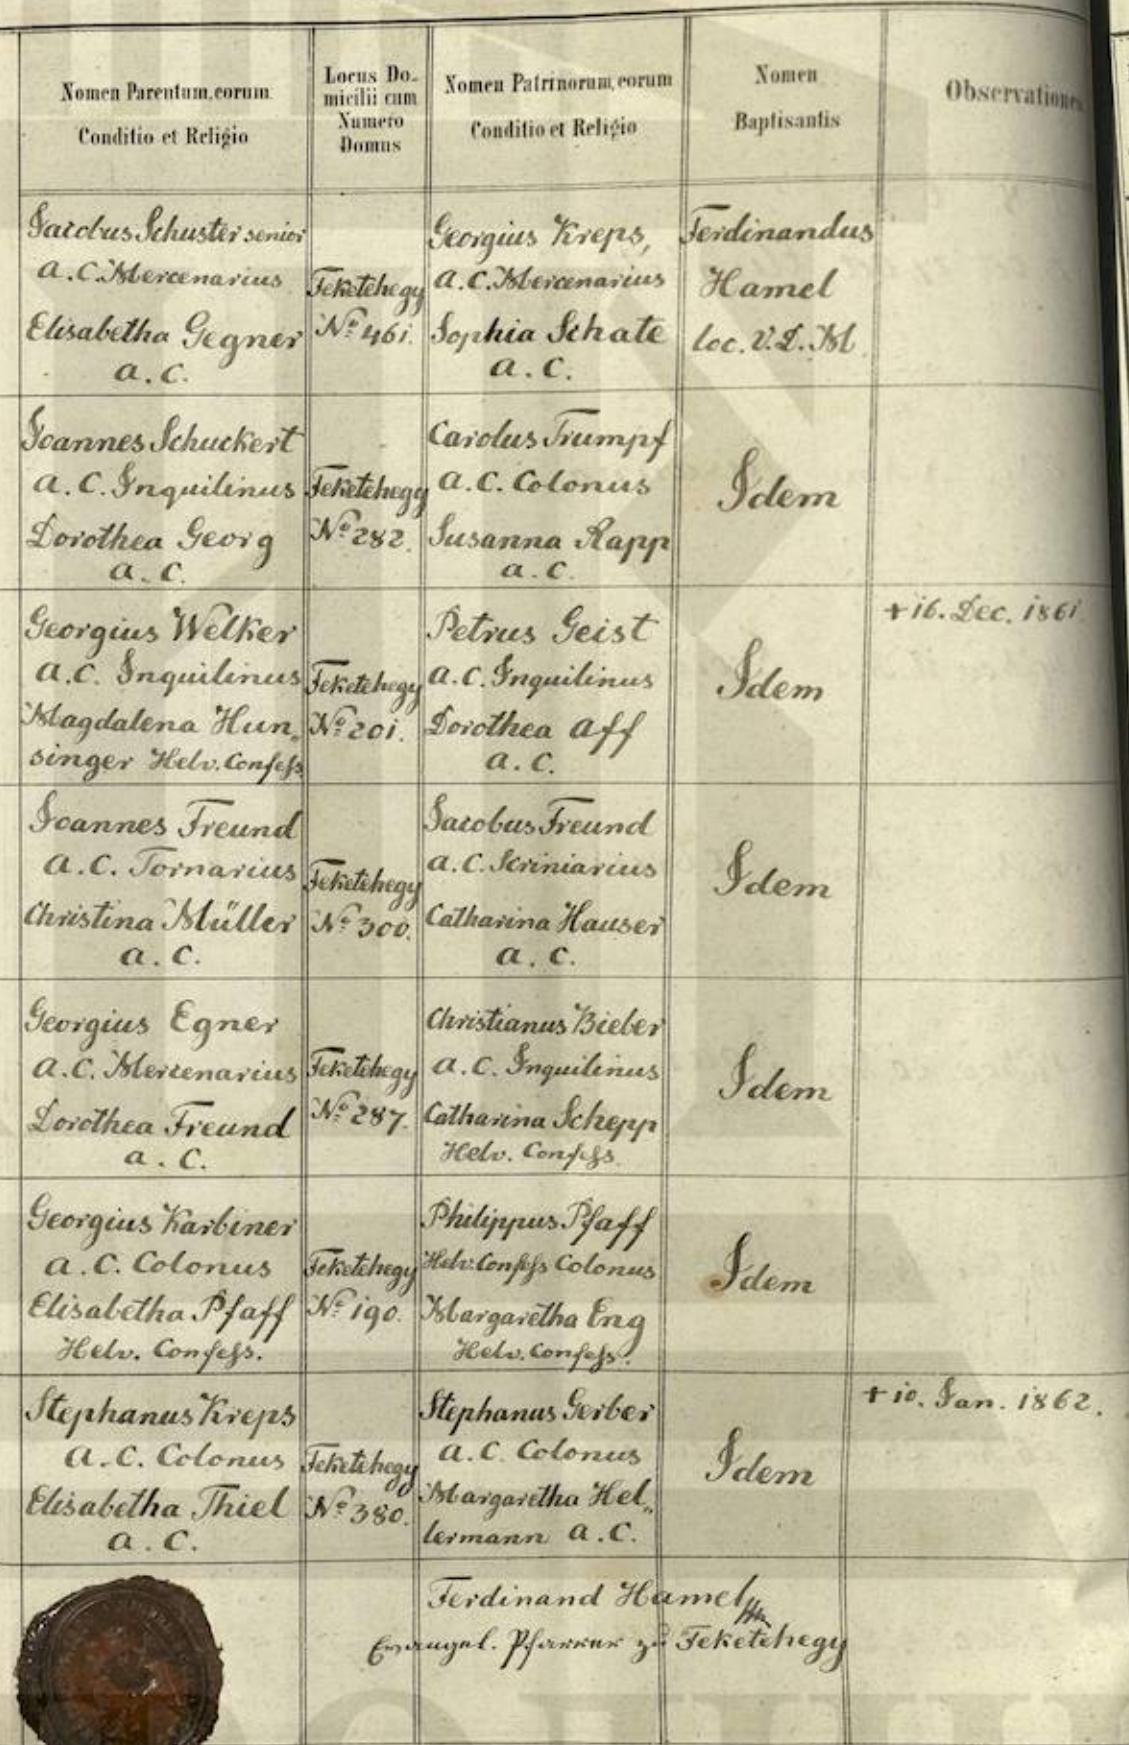 Nomen Parentum, eorum
Conditio et Religio
Locus Do-
micilii cum
Numero
Domus
Nomen Patrinorum, eorum
Conditio et Religio
Nomen
Baptisantis
Observationes
Jacobus Schuster senior
A.C. Mercenarius
Elisabetha Gegner
A.C.
Feketehegy
No 461.
Georgius Kreps,
A.C. Mercenarius
Sophia Schate
A.C.
Ferdinandus
Hamel
loc. V.D.M
Joannes Schuckert
A.C. Inquilinus
Dorothea Georg
A.C.
Feketehegy
No 282.
Carolus Trumpf
A.C. Colonus
Susanna Rapp
A.C.
Idem
Georgius Welker
A.C. Inquilinus
Magdalena Hun„
singer Helv. Confess
Feketehegy
No 201.
Petrus Geist
A.C. Inquilinus
Dorothea Aff
A.C.
Idem
+ 16. Dec. 1861.
Joannes Freund
A.C. Tornarius
Christina Müller
A.C.
Feketehegy
No 300.
Jacobus Freund
A.C. Scriniarius
Catharina Hauser
A.C.
Idem
Georgius Egner
A.C. Mercenarius
Dorothea Freund
A.C.
Feketehegy
No 287.
Christianus Bieber
A.C. Inquilinus
Catharina Schepp
Helv. Confess.
Idem
Georgius Karbiner
A.C. Colonus
Elisabetha Pfaff
Helv. Confess.
Feketehegy
No 190.
Philippus Pfaff
Helv. Confess Colonus
Margaretha Eng
Helv. Confess.
Idem
Stephanus Kreps
A.C. Colonus
Elisabetha Thiel
A.C.
Feketehegy
No 380.
Stephanus Gerber
A.C. Colonus
Margaretha Hel„
lermann A.C.
Idem
+ 10. Jan. 1862.
Ferdinand Hamel
Evangel. Pfarrer zu Feketehegy